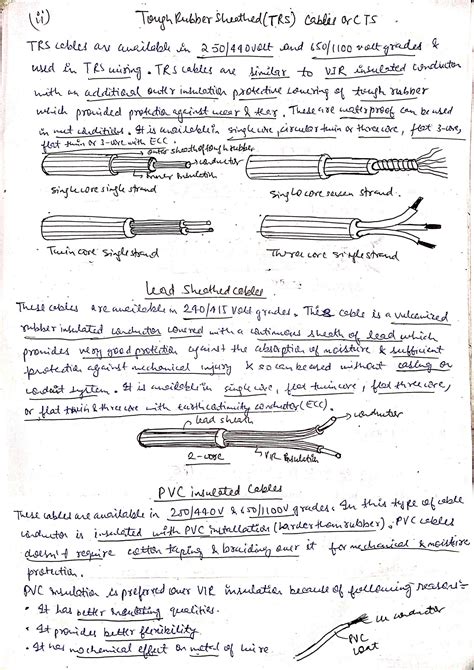 (ii) Tough Rubber Sheathed (TRS) Cables or CTS
TRS cables are available in 250/440 volt and 650/1100 volt grades &
used in TRS wiring. TRS cables are similar to VIR insulated conductor
with an additional outer insulation protective covering of tough rubber
which provided protection against wear & tear. These are waterproof can be used
in wet conditions. It is available in single core, circular twin or three core, flat 3-core,
flat twin or 3-core with ECC.
outer sheath of tough rubber
conductor
inner insulation
Single core single strand
Single core seven strand.
Twin core single strand
Three core single strand
Lead Sheathed cables
These cables are available in 240/415 Volt grades. This cable is a vulcanized
rubber insulated conductor covered with a continuous sheath of lead which
provides very good protection against the absorption of moisture & sufficient
protection against mechanical injury & so can be used without casing or
conduit system. It is available in single core, flat twin core, flat three core,
or flat twin & three core with earth continuity conductor (ECC).
lead sheath
conductor
2-core
VIR Insulation
PVC insulated Cables
These cables are available in 250/440V & 650/1100V grades. In this type of cable
conductor is insulated with PVC installation (harder than rubber). PVC cables
doesn't require cotton taping & braiding over it for mechanical & moisture
protection.
PVC insulation is preferred over VIR insulation because of following reasons:-
• It has better insulating qualities.
• It provides better flexibility.
• It has no chemical effect on metal of wire.
cu conductor
PVC